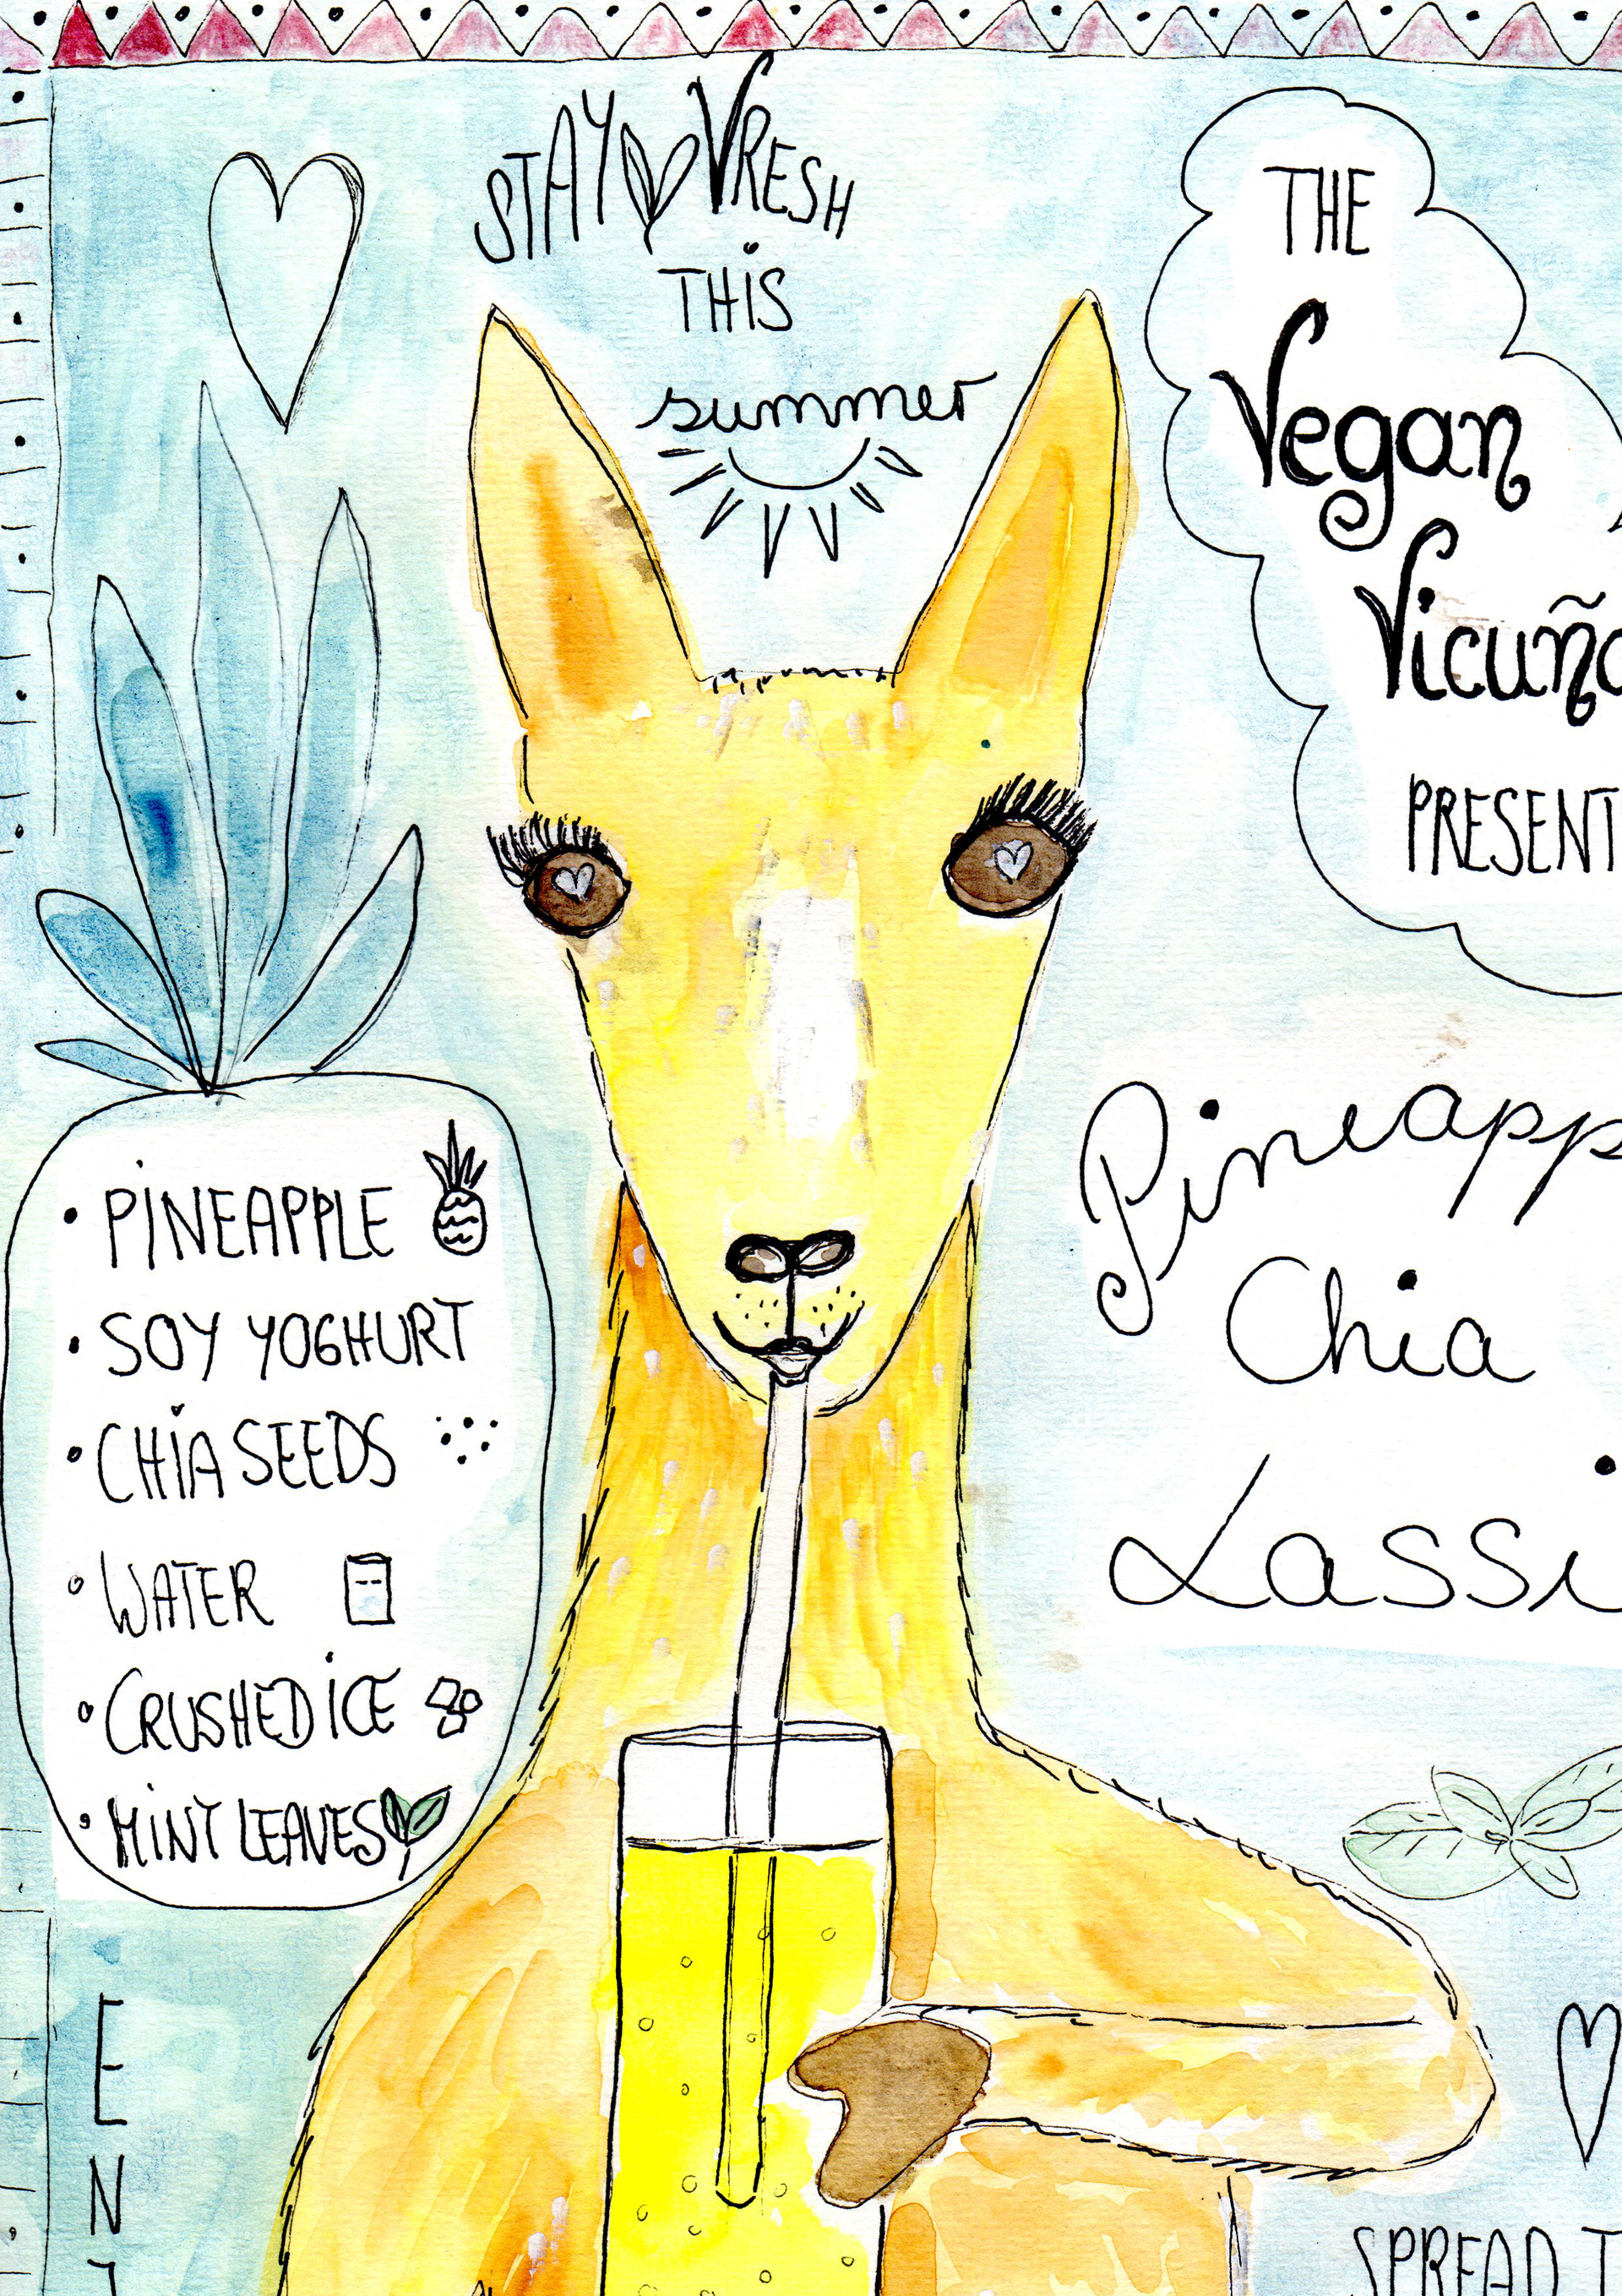 STAY VRESH
THiS
summer
THE
Vegan
Vicuña
PRESENT
Pineapp
Chia
Lassi
• PiNEAPPLE
• SOY YOGHURT
• CHiA SEEDS
• WATER
• CRUSHED iCE
• MiNT LEAVES
E
N
SPREAD T